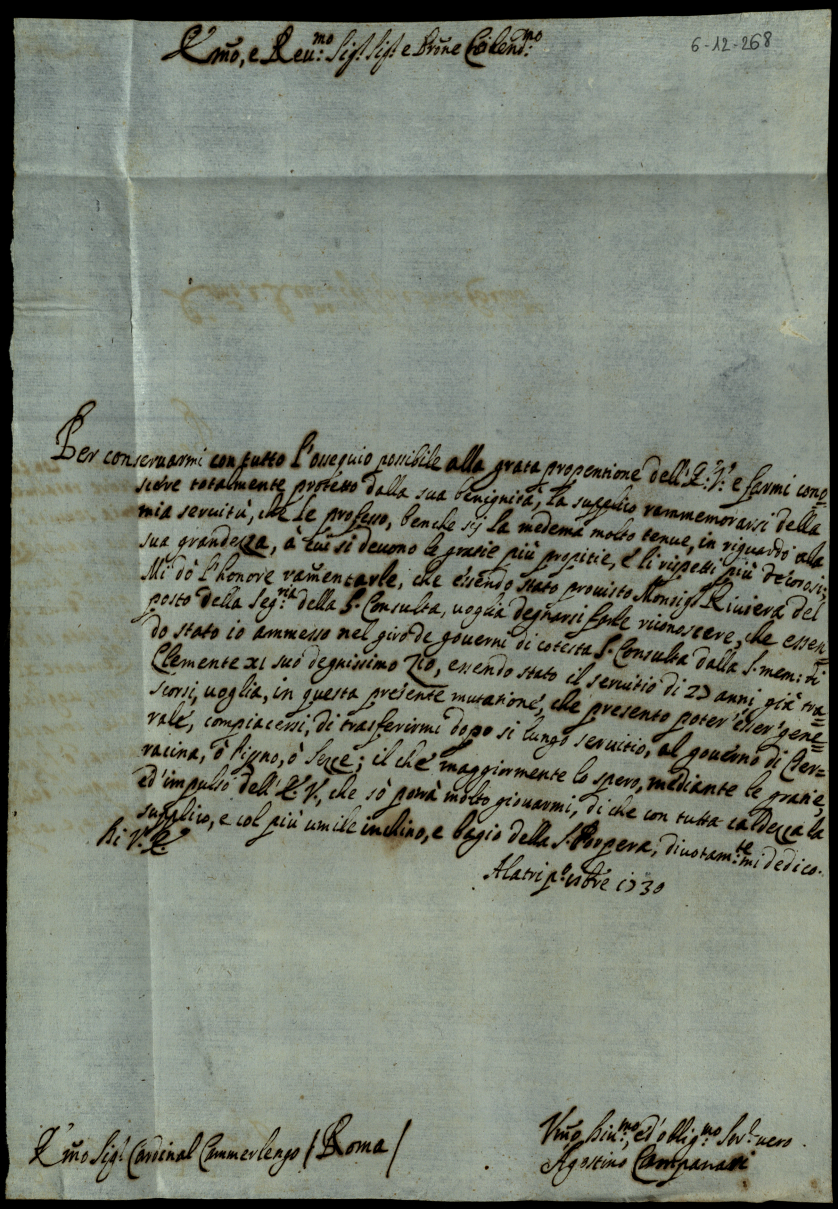 6-12-268
E.mo, e Reu:mo Sig.r Sig.r e Prōne Colend:mo
Per conseruarmi con tutto l'ossequio possibile alla grata propentione dell'E: V: e farmi cono=
scere totalmente protetto dalla sua benignità, La supplico rammemorarsi della
mia seruitù, che Le professo, benche sij la medema molto tenue, in riguardo alla
sua grandezza, à cui si deuono le gratie più propitie, e li rispetti più decorosi;
Mi dò l'honore ramentarle, che essendo stato prouisto Monsig.r Riuiera del
posto della Seg.ria della S. Consulta, uoglia degnarsi farle riconoscere, che essen=
do stato io ammesso nel giro de gouerni di cotesta S. Consulta dalla S. mem: di
Clemente XI suo degnissimo Zio, essendo stato il seruitio di 23 anni già tra=
scorsi, uoglia, in questa presente mutatione, che presento poter'esser gene=
rale, compiacersi, di trasferirmi dopo si lungo seruitio, al gouerno di Ter=
racina, ò Piperno, ò Sezze; il che maggiormente lo spero, mediante le gratie,
ed'impulso dell'E. V., che sò potrà molto giouarmi, di che con tutta caldezza la
supplico, e col più umile inchino, e bagio della S. Porpora, diuotam:te mi dedico.
Di V. E.
Alatri p.o 1730
E.mo Sig.r Cardinal Cammerlengo / Roma /
Vmo Diu:mo, ed'oblig:mo Ser.r uero
Agostino Campanari